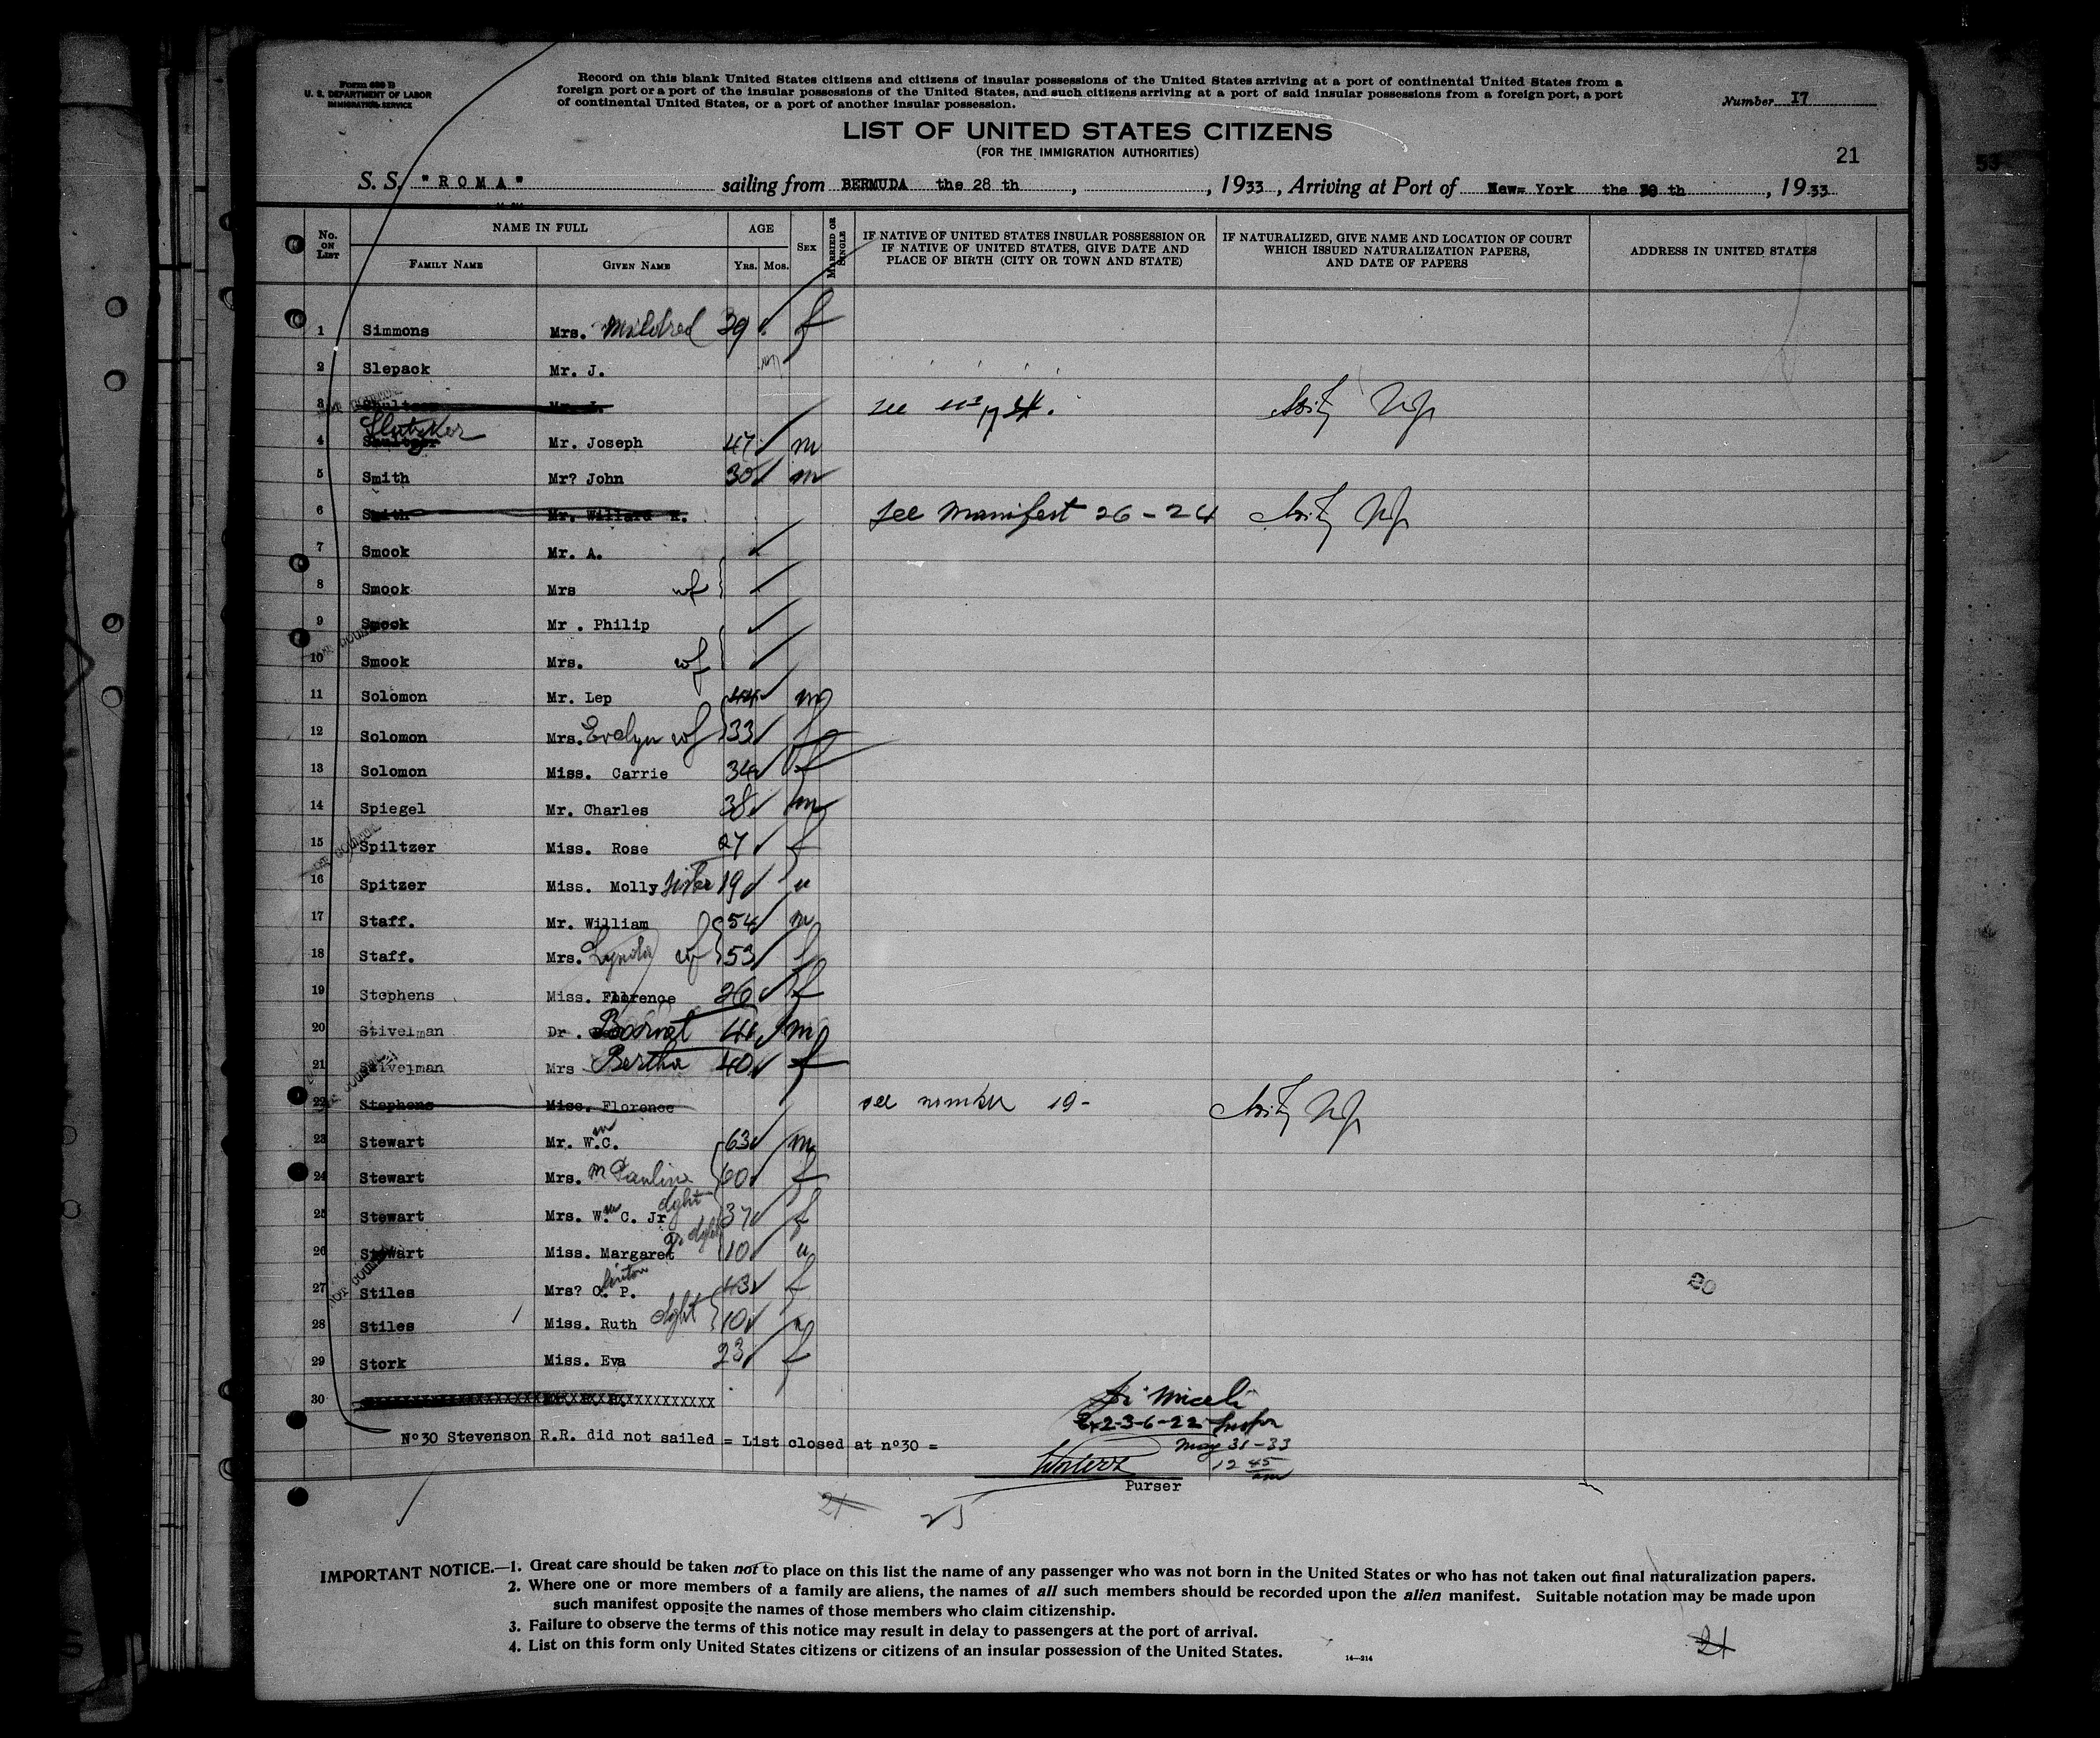 Form 630 B
U. S. DEPARTMENT OF LABOR
IMMIGRATION SERVICE
Record on this blank United States citizens and citizens of insular possessions of the United States arriving at a port of continental United States from a
foreign port or a port of the insular possessions of the United States, and such citizens arriving at a port of said insular possessions from a foreign port, a port
of continental United States, or a port of another insular possession.
Number I7
LIST OF UNITED STATES CITIZENS
(FOR THE IMMIGRATION AUTHORITIES)
21
S. S. "ROMA" sailing from BERMUDA the 28 th , , 1933 , Arriving at Port of New= York the 30 th , 1933
No. ON LIST NAME IN FULL AGE SEX MARRIED OR SINGLE IF NATIVE OF UNITED STATES INSULAR POSSESSION OR IF NATIVE OF UNITED STATES, GIVE DATE AND PLACE OF BIRTH (CITY OR TOWN AND STATE) IF NATURALIZED, GIVE NAME AND LOCATION OF COURT WHICH ISSUED NATURALIZATION PAPERS, AND DATE OF PAPERS ADDRESS IN UNITED STATES
FAMILY NAME GIVEN NAME YRS. MOS.
1 Simmons Mrs. Mildred 39 f
2 Slepack Mr. J.
3 Mr. J. see
4 Slutzker Mr. Joseph 47 m
5 Smith Mr? John 30 m
6 Smith Mr. Willard see Manifest 26-24
7 Smook Mr. A.
8 Smook Mrs wf
9 Smook Mr . Philip
10 Smook Mrs. wf
11 Solomon Mr. Lep 44 m
12 Solomon Mrs. Evelyn wf 33 f
13 Solomon Miss. Carrie 34 f
14 Spiegel Mr. Charles 38 m
15 Spiltzer Miss. Rose 27 f
16 Spitzer Miss. Molly sister 19 "
17 Staff. Mr. William 54 m
18 Staff. Mrs. wf 53 f
19 Stephens Miss. Florence 26 f
20 Stivelman Dr . Barnet m
21 Stivelman Mrs Bertha 40 f
22 Stephens Miss. Florence see number 19-
23 Stewart Mr. Wm.C. 63 m
24 Stewart Mrs. M Pauline 60 f
25 Stewart Mrs. Wm. C. Jr dght 37 f
26 Stewart Miss. Margaret dght 10 "
27 Stiles Mrs? C. P. 43 f
28 Stiles Miss. Ruth dght 10
29 Stork Miss. Eva 23 f
30
Nº30 Stevenson R.R. did not sailed = List closed at nº30 =
Miceli
2-3-6-22
May 31-33
12 45 am
Purser
21
25
IMPORTANT NOTICE.—1. Great care should be taken not to place on this list the name of any passenger who was not born in the United States or who has not taken out final naturalization papers.
2. Where one or more members of a family are aliens, the names of all such members should be recorded upon the alien manifest. Suitable notation may be made upon
such manifest opposite the names of those members who claim citizenship.
3. Failure to observe the terms of this notice may result in delay to passengers at the port of arrival.
4. List on this form only United States citizens or citizens of an insular possession of the United States.
14—214
21